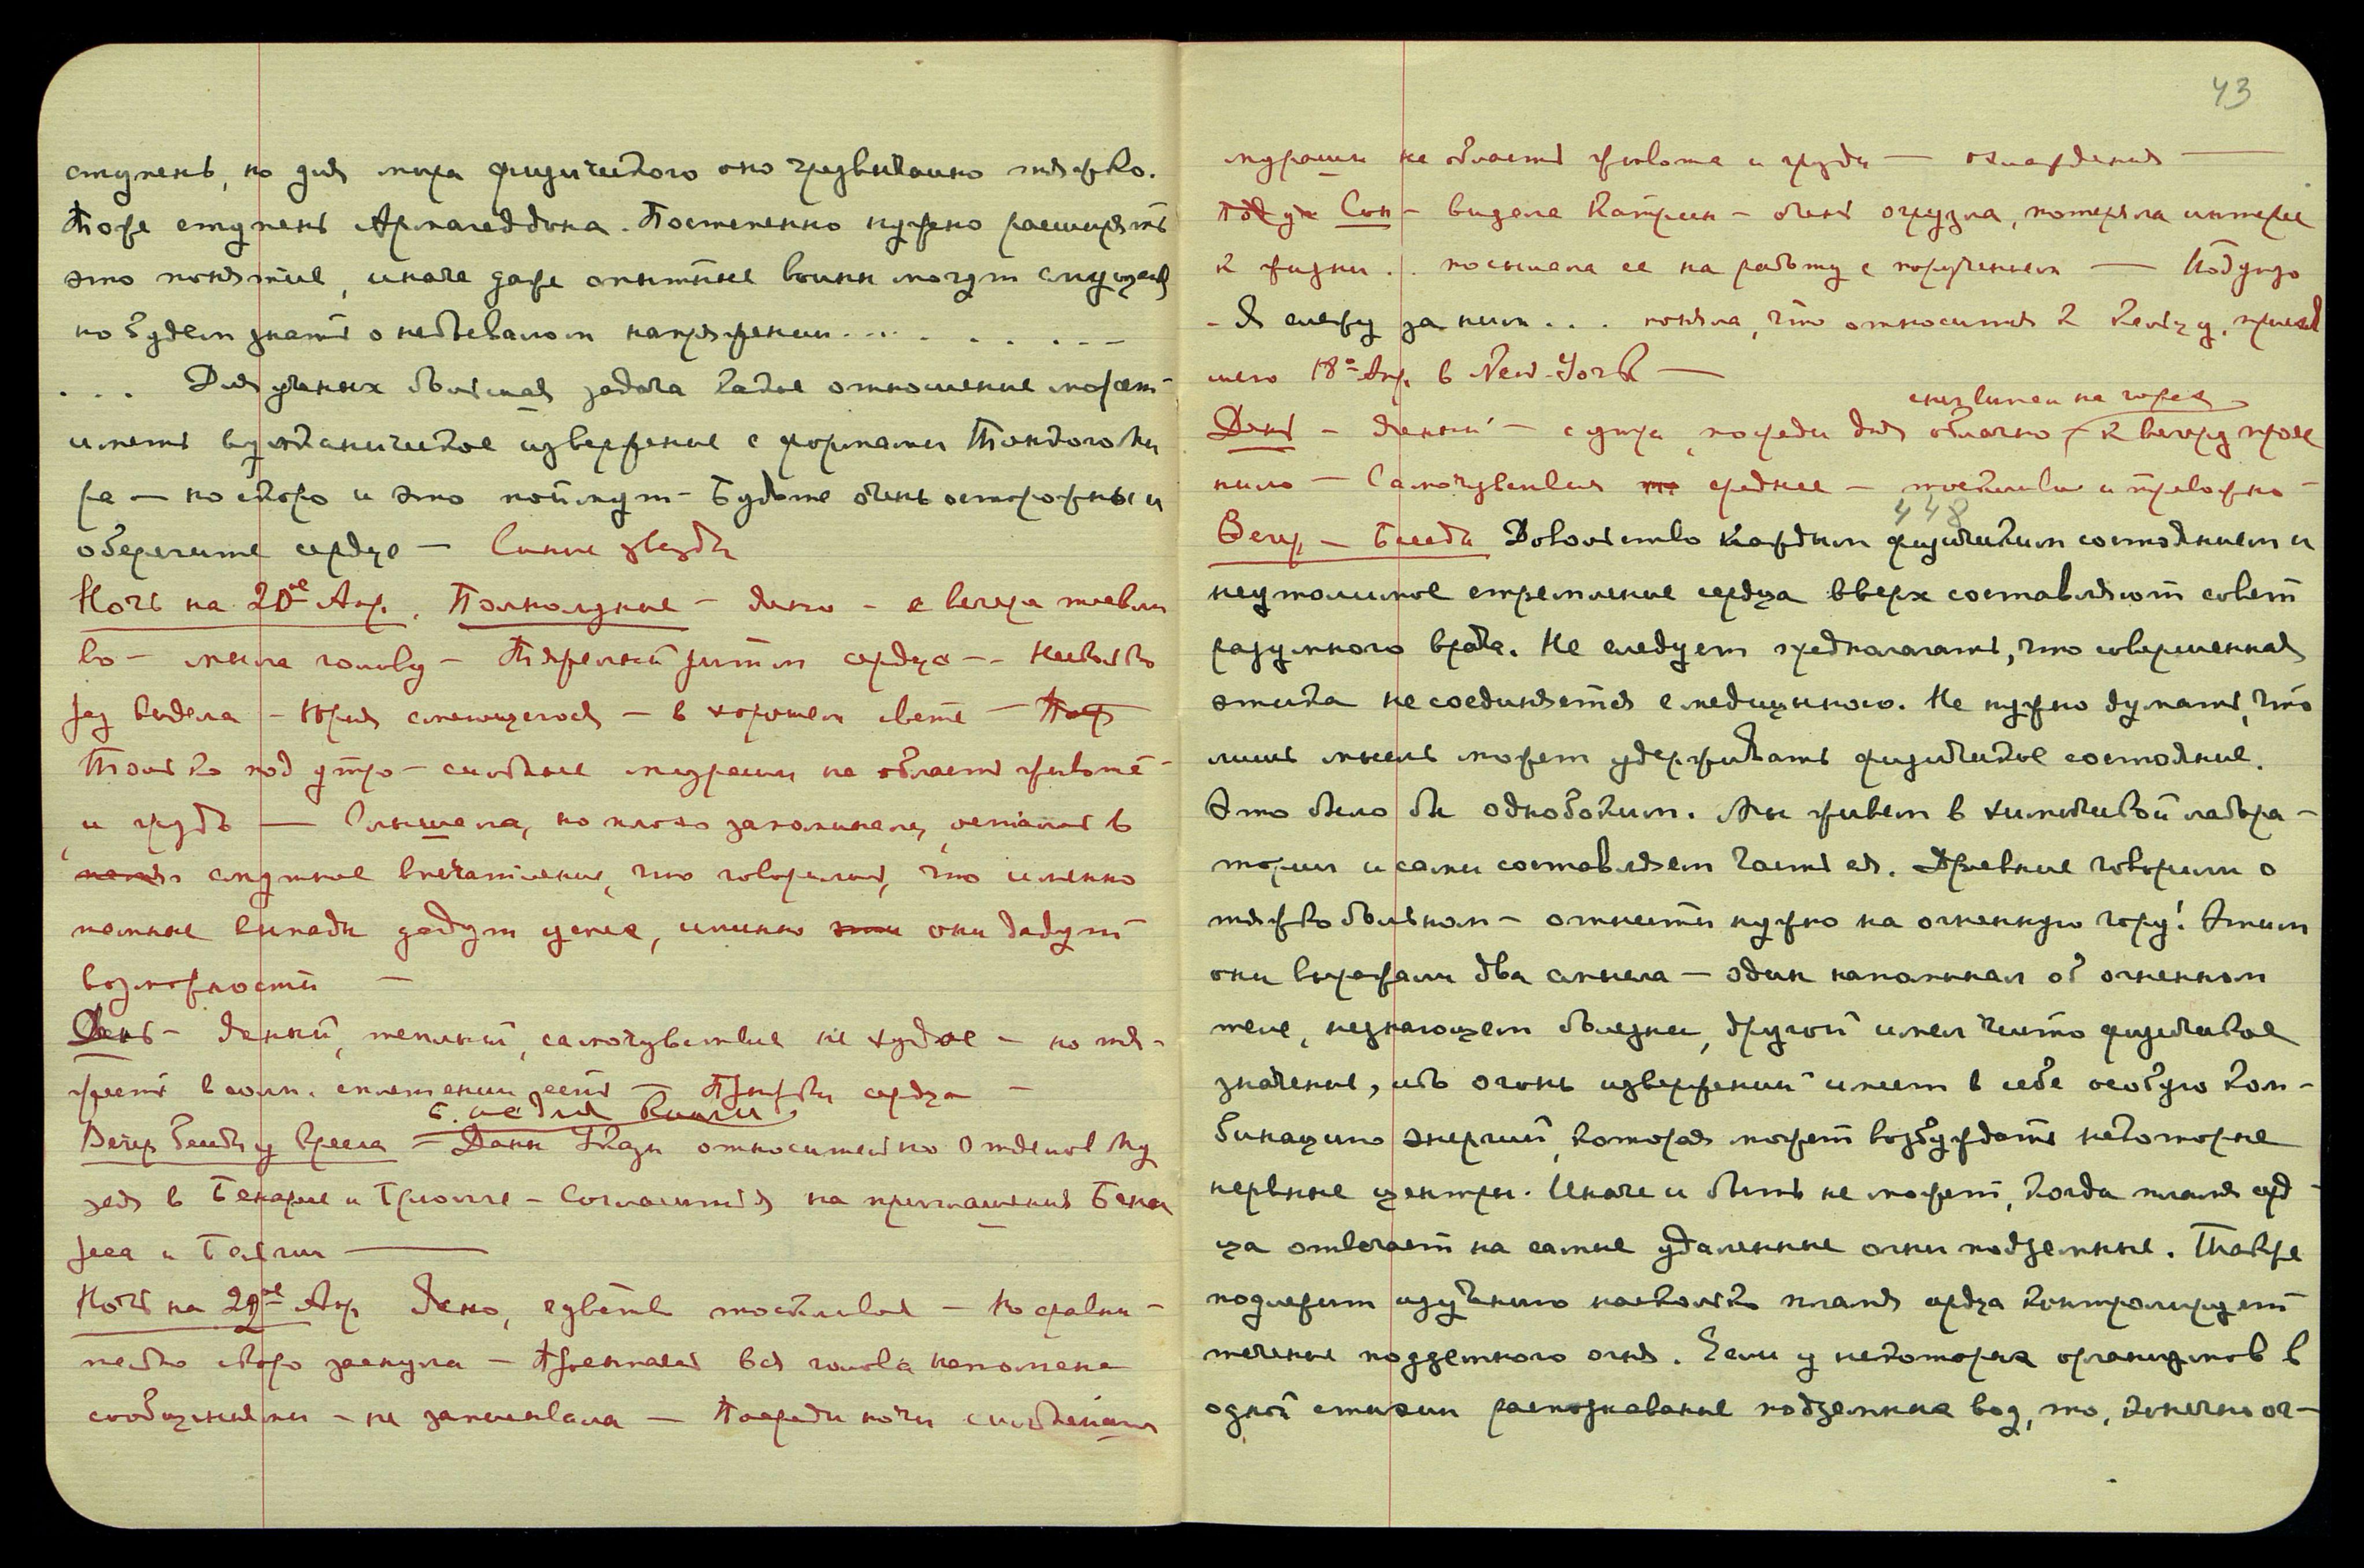 ступень, но для мира физического оно чрезвычайно тяжко.
Тоже ступень Армагеддона. Постепенно нужно расширять
это понятие, иначе даже опытные воины могут смущаться
но будем знать о небывалом напряжении....
... Для ученых большая задача какое отношение может
иметь вулканическое извержение с формами
но скоро и это поймут – Будьте очень осторожны и
оберегите сердце – Синие звезды
Ночь на 20ое Апр. Полнолуние – ясно – с вечера тоскли
во – мыла голову – Тяжелый ритм сердца –– Несколько
раз видела – Юрия смеющегося – в хорошем свете –
Только под утро – сильные мураши на область живота
и грудь — Слышала, но плохо запоминала, осталось в
смутное впечатление, что говорилось, что именно
темные силы дадут успех, именно они дадут
возможности –
День – ясный, теплый, самочувствие не худое – но тя-
жесть в солн. сплетении есть – сердца –
Вечер беседы у кресла – Даны Указы относительно Отделов Му
зея в Бенаресе и – Согласиться на приглашения Бена
реса и
Ночь на 21ое Апр Ясно, чувство тоскливое – По сравни-
тельно скоро заснула – Просыпаясь вся голова наполнена
сообщениями – не записывала – Посреди ночи сильнейшие
43
мураши на область живота и груди — охлаждения —
Сон – видела Катрин – очень огрузла, потеряла интерес
к жизни .. посылала ее на работу с поручением — Под утро
– Я слежу за ним ... поняла, что относится к
шего 18го Апр. в New-York —
снег выпал на горах
День – ясный – с утра, посреди дня облачно – к вечеру прояс
нило – Самочувствие среднее – тоскливо и тревожно –
448
Вечер – Беседа Довольство каждым физическим состоянием и
неутолимое стремление сердца вверх составляют совет
разумного врача. Не следует предполагать, что совершенная
этика не соединяется с медициною. Не нужно думать, что
лишь мысль может удерживать физическое состояние.
Это было бы однобоким. Мы живем в химической лабора-
тории и сами составляем часть ея. Древние говорили о
тяжко больном – отнести нужно на огненную гору! Этим
они выражали два смысла – один напоминал об огненном
теле, незнающем болезни, другой имел чисто физическое
значение, ибо огонь извержений имеет в себе особую ком-
бинацию энергий, которая может возбуждать некоторые
нервные центры. Иначе и быть не может, когда пламя серд
ца отвечает на самые удаленные огни подземные. Также
подлежит изучению насколько пламя сердца контролирует
течение подземного огня. Если у некоторых организмов в
одной стихии распознавание подземных вод, то, конечно ог-